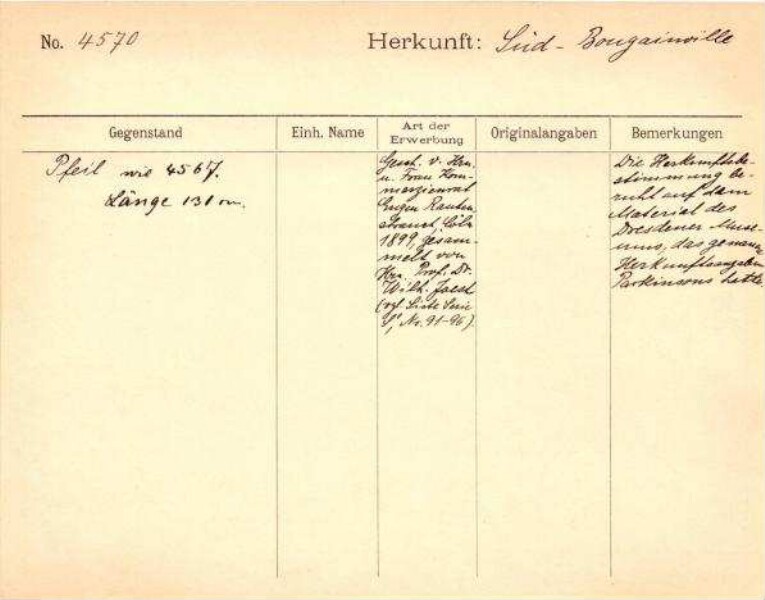 No. 4570
Herkunft: Süd-Bougainville
Gegenstand
Einh. Name
Art der
Erwerbung
Originalangaben
Bemerkungen
Pfeil wie 4567.
Länge 131 cm.
Gesch. v. Hrn.
u. Frau Kom-
merzienrat
Eugen Rauten-
strauch, Cöln
1899, gesam-
melt von
Hrn. Prof. Dr.
Wilh. Joest
(vgl. Liste Serie
Nr. 91-96).
Die Herkunftsbe-
stimmung be-
ruht auf dem
Material des
Dresdener Muse-
ums, das genaue
Herkunftsangaben
Parkinsons hatte.